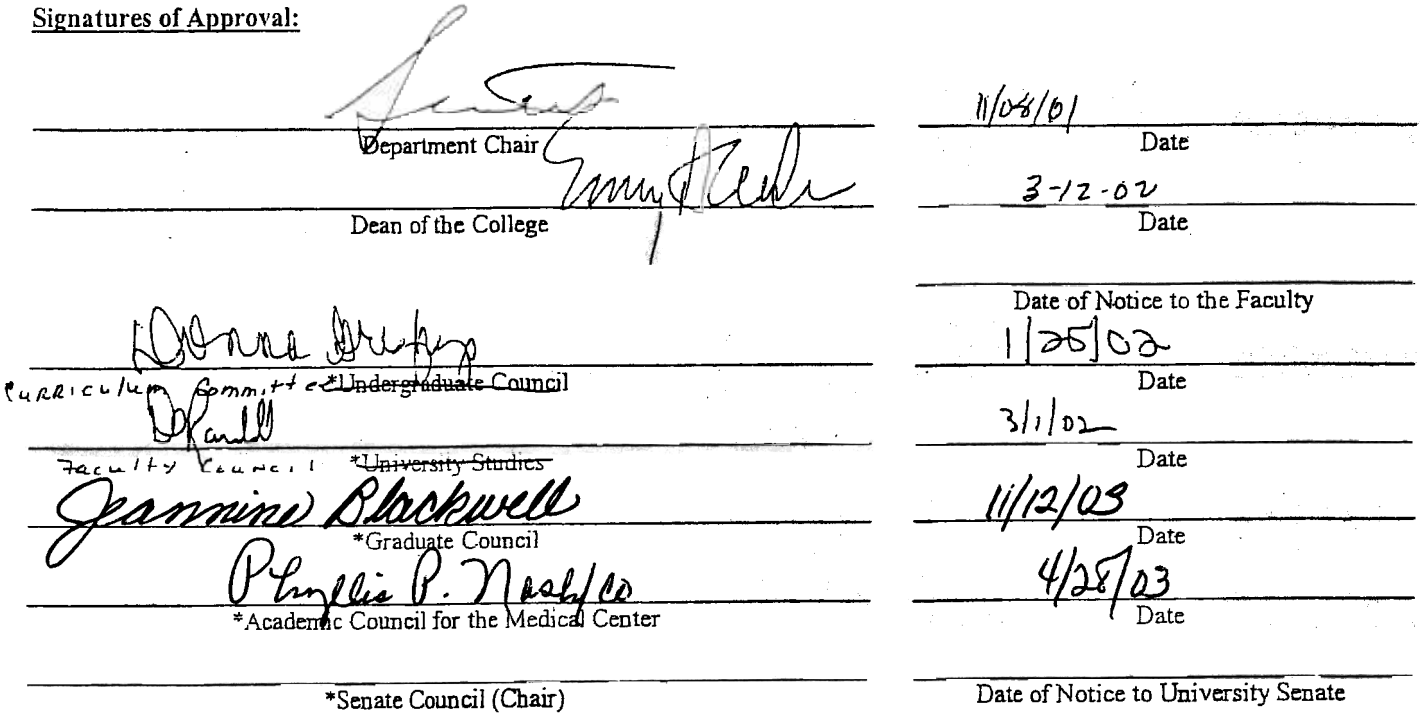 Signatures of Approval:
11/08/01
Department Chair Date
3-12-02
Dean of the College Date
Date of Notice to the Faculty
Donna 1/25/02
Curriculum Committee *Undergraduate Council Date
3/1/02
Faculty Council *University Studies Date
Jeannine Blackwell 11/12/03
*Graduate Council Date
Phyllis P. Nash/co 4/28/03
*Academic Council for the Medical Center Date
*Senate Council (Chair) Date of Notice to University Senate